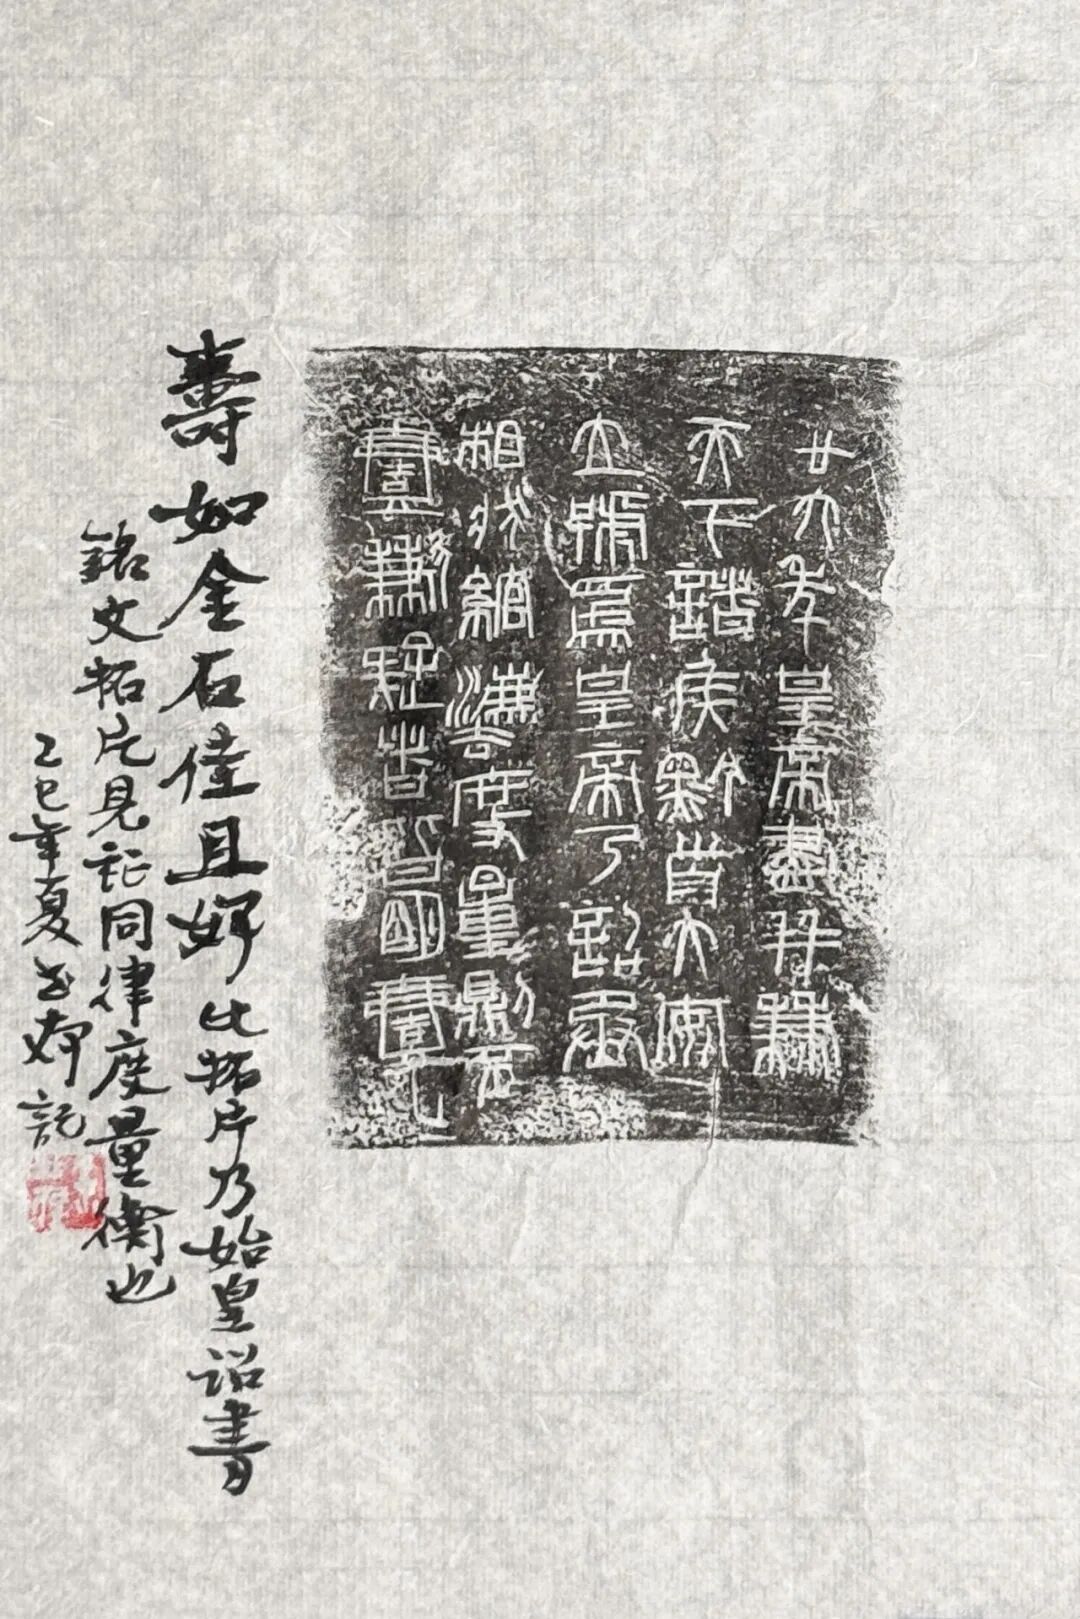 廿六年皇帝盡并兼
天下諸侯黔首大安
立號為皇帝乃詔丞
相狀綰灋度量則不
壹歉疑者皆明壹之
壽如金石佳且好此拓片乃始皇詔書
銘文拓片見証同律度量衡也
乙巳年夏記